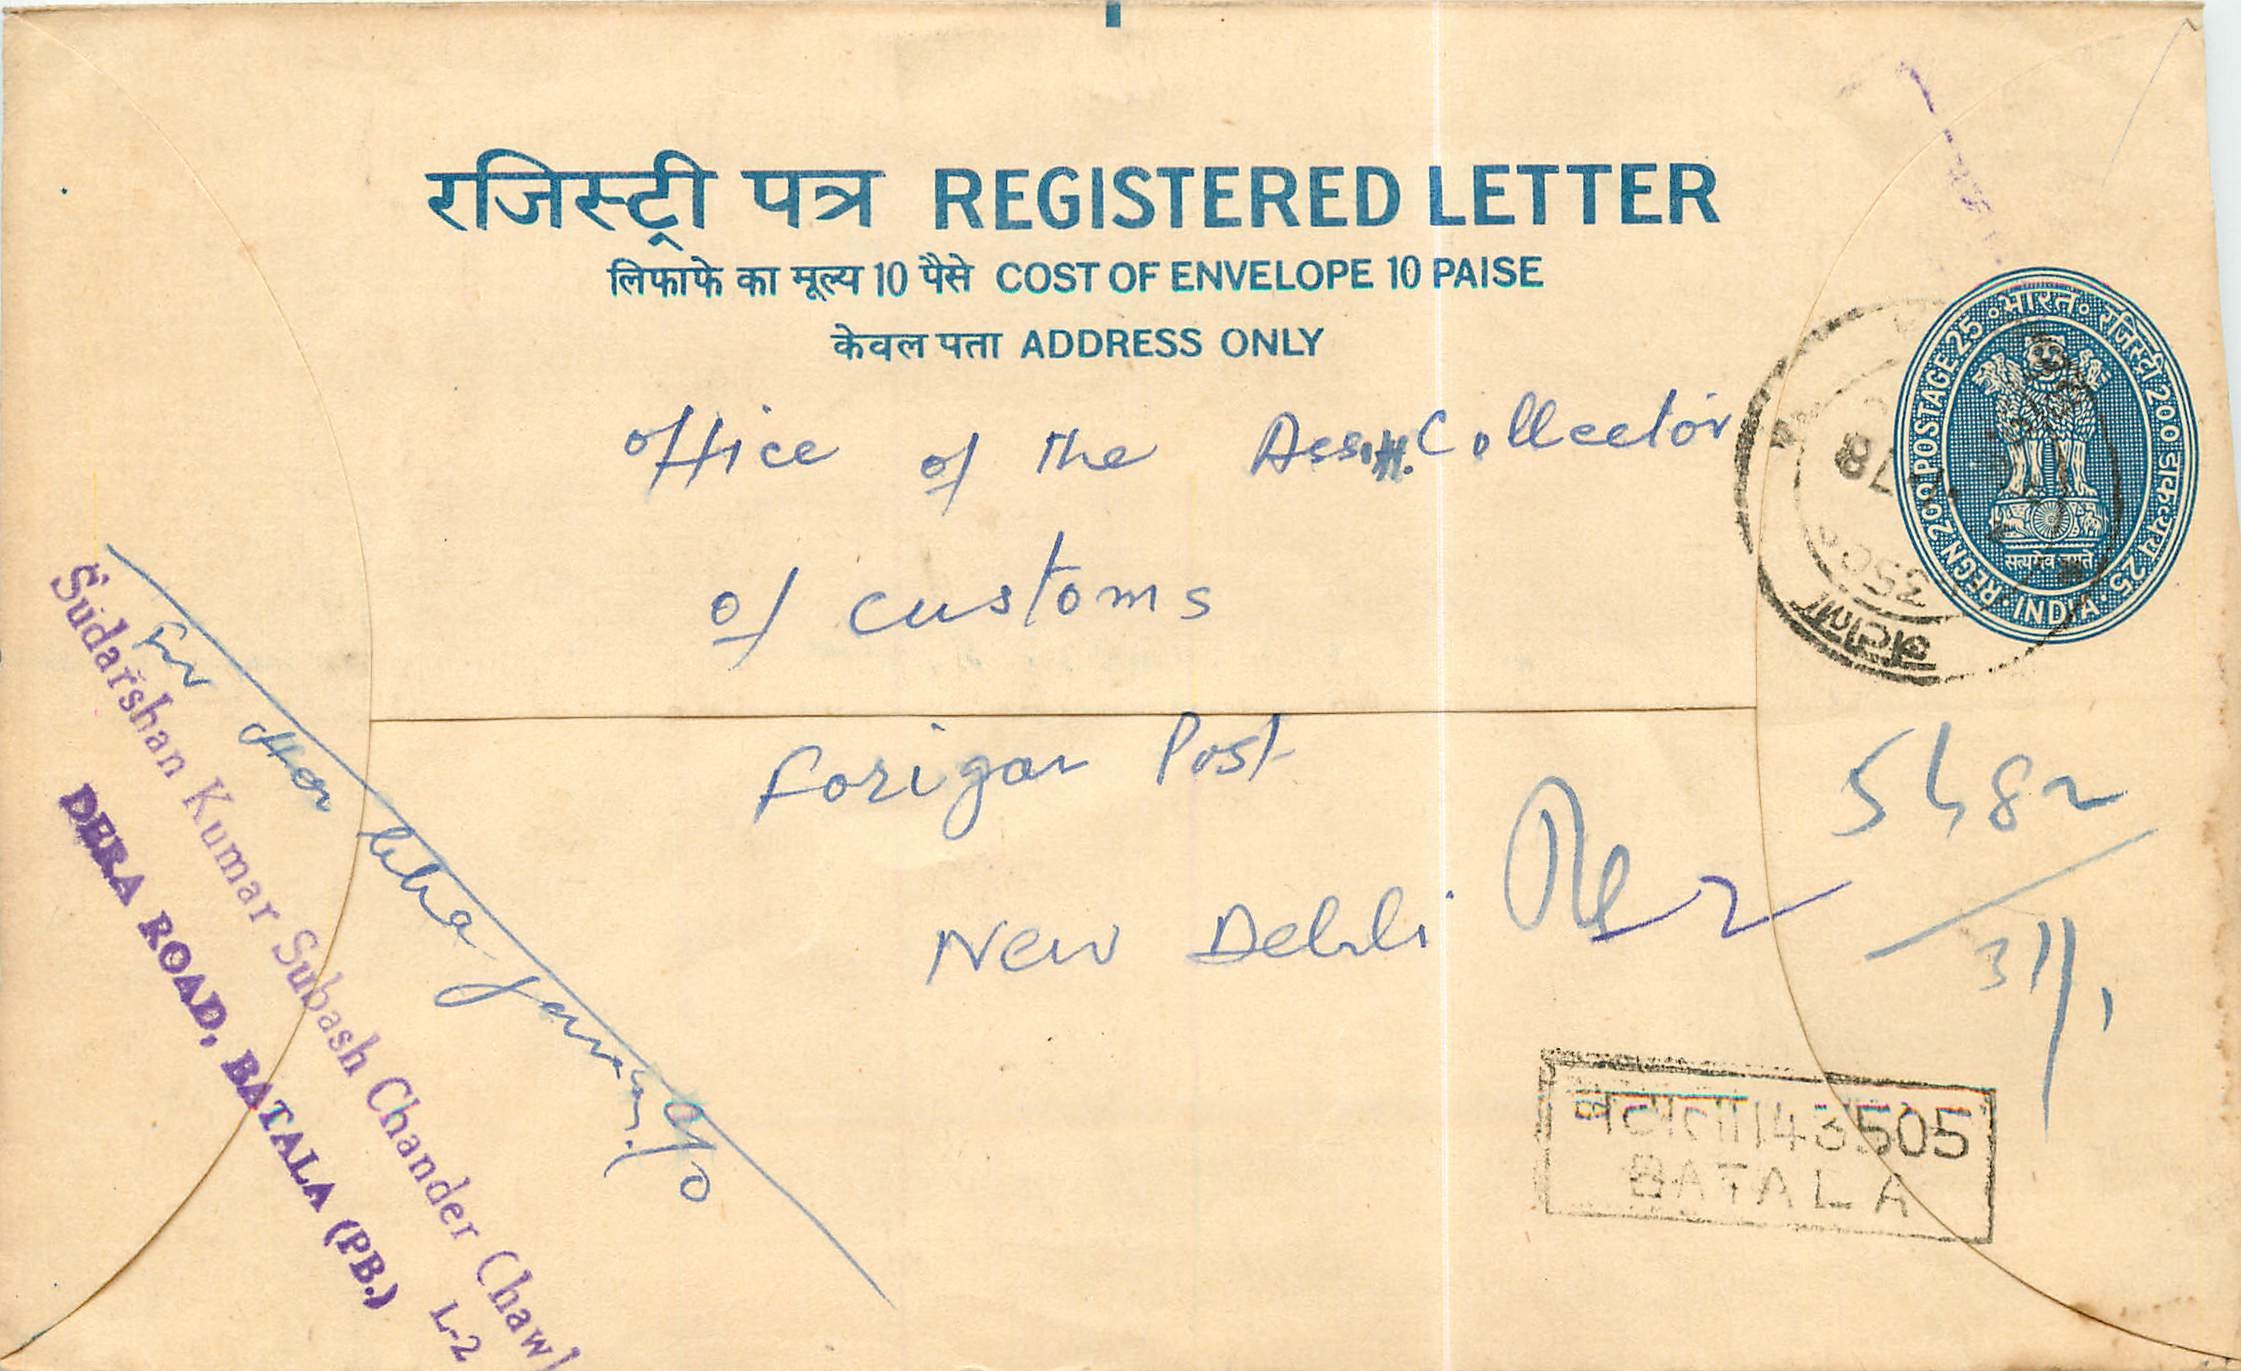 रजिस्ट्री पत्र REGISTERED LETTER
लिफाफे का मूल्य 10 पैसे COST OF ENVELOPE 10 PAISE
केवल पता ADDRESS ONLY
• भारत • रजिस्ट्री 200 डाकव्यय 25 • INDIA • REGN 200 POSTAGE 25
सत्यमेव जयते
office of the Asstt. Collector
of customs
Forigan Post
New Delhi
5482
31/1
बटाला 143505
BATALA
बटाला
Sudarshan Kumar Subash Chander Chawl
DERA ROAD, BATALA (PB.)
L-2